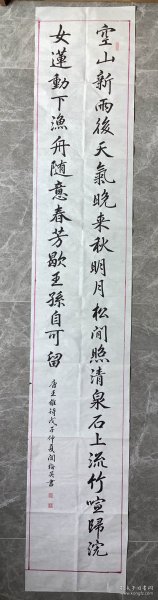 空山新雨後天氣晚来秋明月松间照清泉石上流竹喧歸浣
女蓮動下漁舟随意春芳歇王孫自可留
唐王維詩戊子仲夏